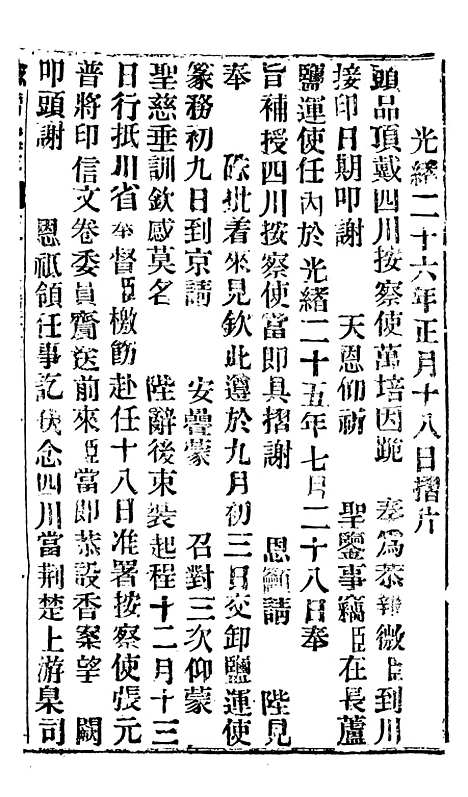 光緒二十六年正月十八日摺片
頭品頂戴四川按察使萬培因跪　奏爲恭報微臣到川
接印日期叩謝　天恩仰祈　聖鑒事竊臣在長蘆
鹽運使任內於光緒二十五年七月二十八日奉
旨補授四川按察使當即具摺謝　恩籲請　陛見
奉　硃批着來見欽此遵於九月初三日交卸鹽運使
篆務初九日到京請　安疊蒙　召對三次仰蒙
聖慈垂訓欽感莫名　陛辭後束裝起程十二月十三
日行抵川省奉督臣檄飭赴任十八日准署按察使張元
普將印信文卷委員齎送前來臣當即恭設香案望　闕
叩頭謝　恩祇領任事訖伏念四川當荆楚上游臬司